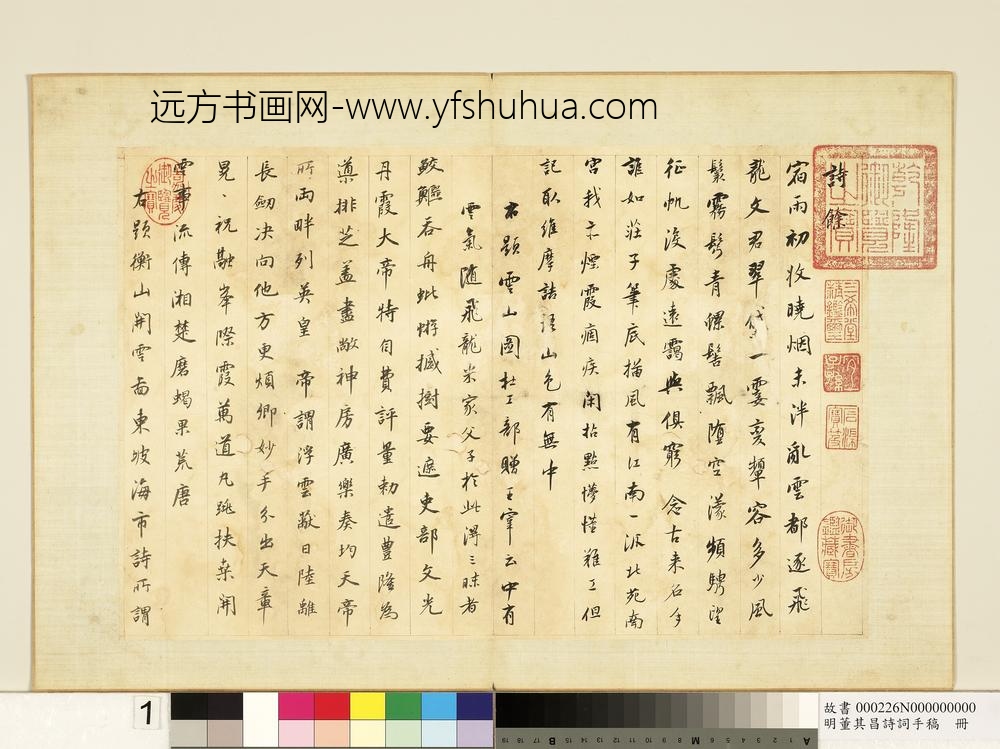 远方书画网-www.yfshuhua.com
詩餘
宿雨初收曉烟未泮亂雲都逐飛
龍文君翠黛一霎變顰容多少風
鬟霧鬢青螺髻飄墮空濛頻騁望
征帆沒處遠靄與俱窮 念古来名手
誰如莊子筆底描風有江南一派北苑南
宮我亦煙霞痼疾閑拈點慘憺難工但
記取維摩詰語山色有無中
右題雲山圖杜工部贈王宰云中有
雲氣隨飛龍米家父子於此得三昧者
鮫鱷吞舟蚍蜉撼樹要遮吏部文光
丹霞大帝特自費評量勅遣豊隆為
導排芝蓋盡敞神房廣樂奏均天帝
所兩畔列英皇 帝謂浮雲蔽日陸離
長劒决向他方更煩卿妙手分出天章
晃、祝融峯際霞萬道丸跳扶桒開
雲事流傳湘楚磨蝎果荒唐
右題衡山開雲啚東坡海市詩所謂
乾隆御覽之寶
三希堂精鑑璽
宜子孫
石渠寶笈
御書房鑑藏寶
1
B
M
A
故書 000226N000000000
明董其昌詩詞手稿 冊